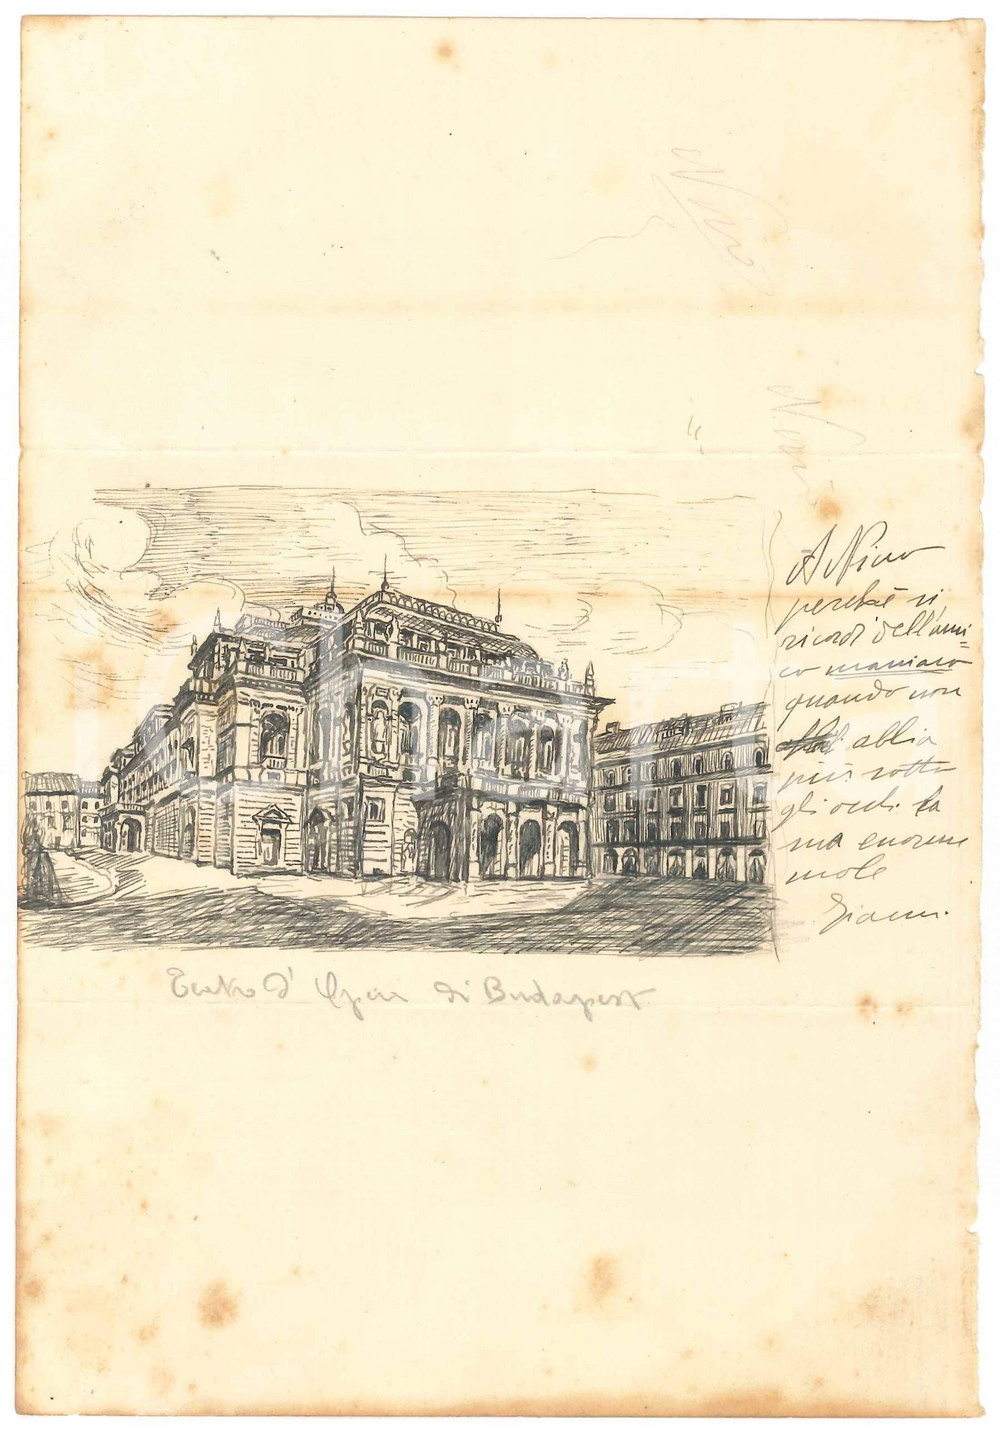 Nino
Nino
A Nino
perchè si
ricordi dell'ami=
co maniaco
quando non
abbia
più sotto
gli occhi la
mia enorme
mole
Gianni.
Teatro d' Opera di Budapest